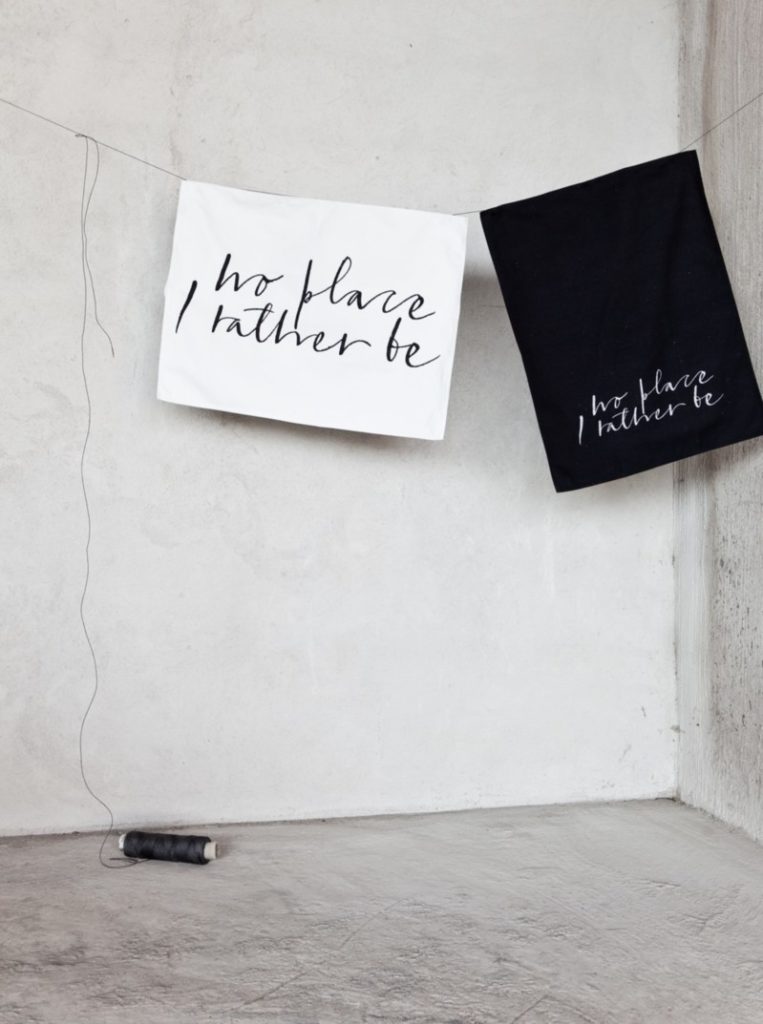 no place
I rather be
no place
I rather be